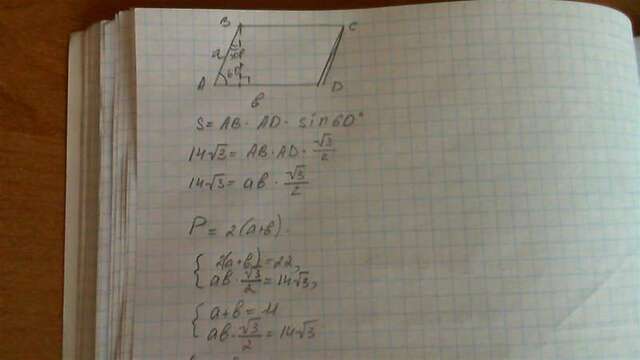 B C
a 30°
A 60° D
b
S = AB · AD · sin 60°
14√3 = AB · AD · √3/2
14√3 = ab · √3/2
P = 2(a+b).
{ 2(a+b) = 22,
ab · √3/2 = 14√3,
{ a+b = 11
ab · √3/2 = 14√3